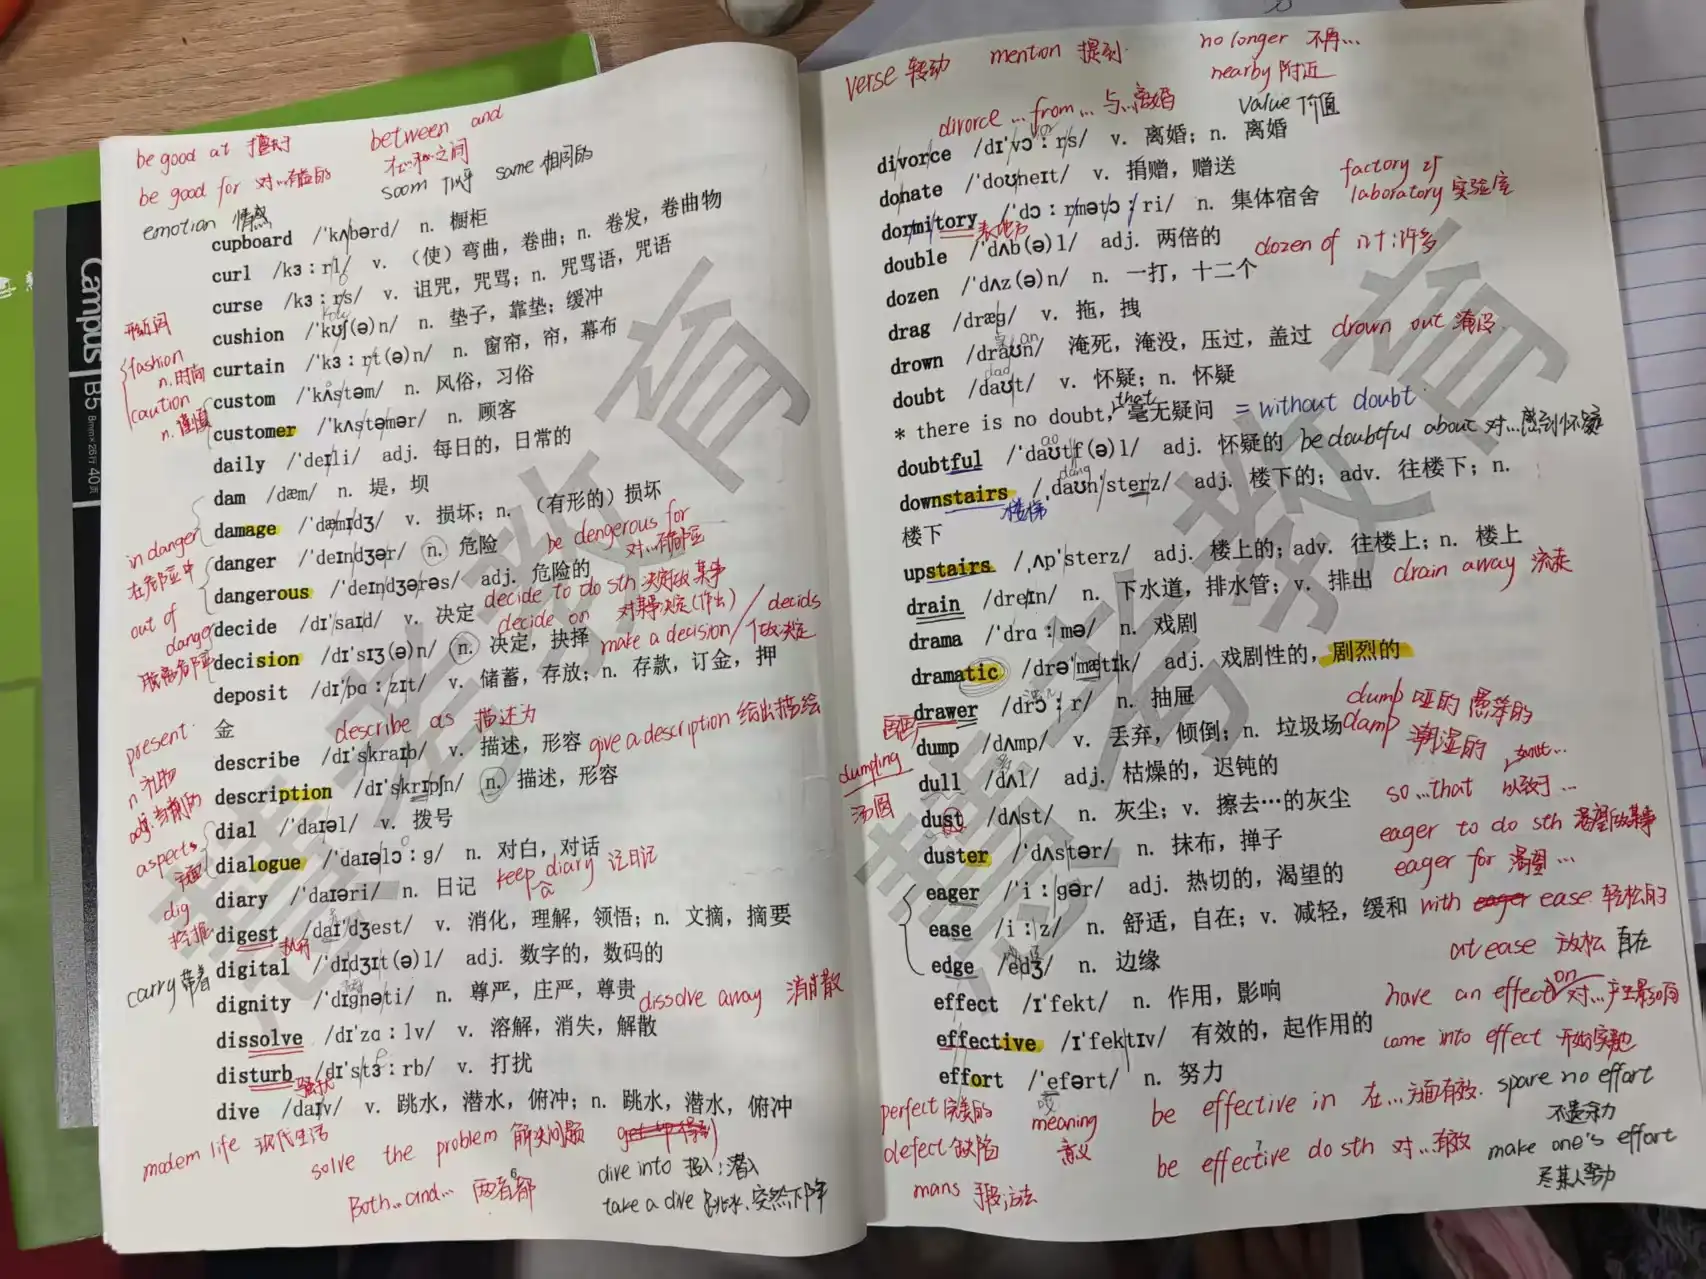 Campus
B5
8mm×26行 40页
be good at 擅于
between and
在..和..之间
be good for 对...有益的
soom 几乎 same 相同的
emotion 情感
cupboard /ˈkʌbərd/ n. 橱柜
curl /kɜːrl/ v. （使）弯曲，卷曲；n. 卷发，卷曲物
curse /kɜːrs/ v. 诅咒，咒骂；n. 咒骂语，咒语
cushion /ˈkʊʃ(ə)n/ n. 垫子，靠垫；缓冲
fashion
n. 时尚
curtain /ˈkɜːrt(ə)n/ n. 窗帘，帘，幕布
caution
n. 谨慎
custom /ˈkʌstəm/ n. 风俗，习俗
customer /ˈkʌstəmər/ n. 顾客
daily /ˈdeɪli/ adj. 每日的，日常的
dam /dæm/ n. 堤，坝
damage /ˈdæmɪdʒ/ v. 损坏；n. （有形的）损坏
in danger
在危险中
be dengerous for
对...有危险
danger /ˈdeɪndʒər/ n. 危险
dangerous /ˈdeɪndʒərəs/ adj. 危险的
out of
danger
脱离危险
decide to do sth 决定做某事
decide /dɪˈsaɪd/ v. 决定 decide on 对某事决定(作出)
decision /dɪˈsɪʒ(ə)n/ n. 决定，抉择 make a decision / decids
做决定
deposit /dɪˈpɑːzɪt/ v. 储蓄，存放；n. 存款，订金，押
金
present
n. 礼物
adj. 当前的
describe as 描述为
describe /dɪˈskraɪb/ v. 描述，形容 give a description 给出描绘
description /dɪˈskrɪpʃn/ n. 描述，形容
dial /ˈdaɪəl/ v. 拨号
aspects
方面
dialogue /ˈdaɪəlɔːg/ n. 对白，对话
diary /ˈdaɪəri/ n. 日记 keep a diary 记日记
dig
挖掘
digest /daɪˈdʒest/ v. 消化，理解，领悟；n. 文摘，摘要
digital /ˈdɪdʒɪt(ə)l/ adj. 数字的，数码的
carry 带着
dignity /ˈdɪgnəti/ n. 尊严，庄严，尊贵 dissolve away 消散
dissolve /dɪˈzɑːlv/ v. 溶解，消失，解散
disturb /dɪˈstɜːrb/ v. 打扰
骚扰
dive /daɪv/ v. 跳水，潜水，俯冲；n. 跳水，潜水，俯冲
modem life 现代生活
solve the problem 解决问题
dive into 投入；潜入
Both...and... 两者都
take a dive 跳水、突然下降
verse 转动 mention 提到
no longer 不再...
nearby 附近
value 价值
divorce ... from ... 与...离婚
divorce /dɪˈvɔːrs/ v. 离婚；n. 离婚
donate /ˈdoʊneɪt/ v. 捐赠，赠送
factory
laboratory 实验室
dormitory /ˈdɔːrmətɔːri/ n. 集体宿舍
表地方
double /ˈdʌb(ə)l/ adj. 两倍的
dozen of 几十；许多
dozen /ˈdʌz(ə)n/ n. 一打，十二个
drag /dræg/ v. 拖，拽
drown /draʊn/ 淹死，淹没，压过，盖过 drown out 淹没
doubt /daʊt/ v. 怀疑；n. 怀疑
that
* there is no doubt, 毫无疑问 = without doubt
doubtful /ˈdaʊtf(ə)l/ adj. 怀疑的 be doubtful about 对...感到怀疑
downstairs /ˌdaʊnˈsterz/ adj. 楼下的；adv. 往楼下；n.
楼梯
楼下
upstairs /ˌʌpˈsterz/ adj. 楼上的；adv. 往楼上；n. 楼上
drain /dreɪn/ n. 下水道，排水管；v. 排出 drain away 流走
drama /ˈdrɑːmə/ n. 戏剧
dramatic /drəˈmætɪk/ adj. 戏剧性的，剧烈的
drawer /drɔːr/ n. 抽屉
dump 哑的 愚笨的
dump /dʌmp/ v. 丢弃，倾倒；n. 垃圾场
damp 潮湿的
dumpling
汤圆
dull /dʌl/ adj. 枯燥的，迟钝的
so ...that 以致于...
dust /dʌst/ n. 灰尘；v. 擦去…的灰尘
eager to do sth 渴望做某事
duster /ˈdʌstər/ n. 抹布，掸子
eager for 渴望 ...
eager /ˈiːgər/ adj. 热切的，渴望的
ease /iːz/ n. 舒适，自在；v. 减轻，缓和 with ease 轻松的
at ease 放松 自在
edge /edʒ/ n. 边缘
effect /ɪˈfekt/ n. 作用，影响
have an effect on 对...产生影响
effective /ɪˈfektɪv/ 有效的，起作用的
come into effect 开始实施
effort /ˈefərt/ n. 努力
perfect 完美的
meaning
意义
be effective in 在...方面有效.
spare no effort
不遗余力
defect 缺陷
be effective do sth 对...有效
make one's effort
尽某人努力
mans 手段；方法
慧考教育
慧考教育